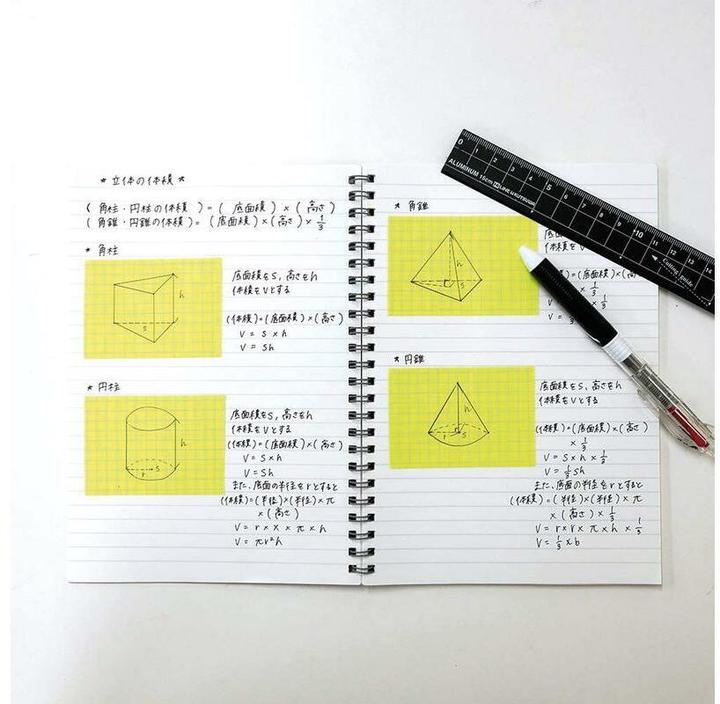 ★ 立体の体積 ★
( 角柱・円柱の体積 ) = ( 底面積 ) × ( 高さ )
( 角錐・円錐の体積 ) = ( 底面積 ) × ( 高さ ) × 1/3
★ 角柱
h
S
底面積をS, 高さをh
体積をVとする
(体積) = (底面積) × (高さ)
V = S × h
V = Sh
★ 円柱
h
r S
底面積をS, 高さをh
体積をVとする
(体積) = (底面積) × (高さ)
V = S × h
V = Sh
また、底面の半径をrとすると
(体積) = (半径) × (半径) × π
× (高さ)
V = r × r × π × h
V = πr²h
★ 角錐
h
S
体積をV
= (底面積) × (高さ
× 1/3
V =
V =
★ 円錐
h
r S
底面積をS, 高さをh
体積をVとする
(体積) = (底面積) × (高さ)
× 1/3
V = S × h × 1/3
V = 1/3 Sh
また、底面の半径をrとすると
(体積) = (半径) × (半径) × π
× (高さ) × 1/3
V = r × r × π × h × 1/3
V = 1/3 × b
0 1 2 3 4 5 6 7 8 9 10 11 12 13 14
ALUMINUM 15cm
Cutting guide